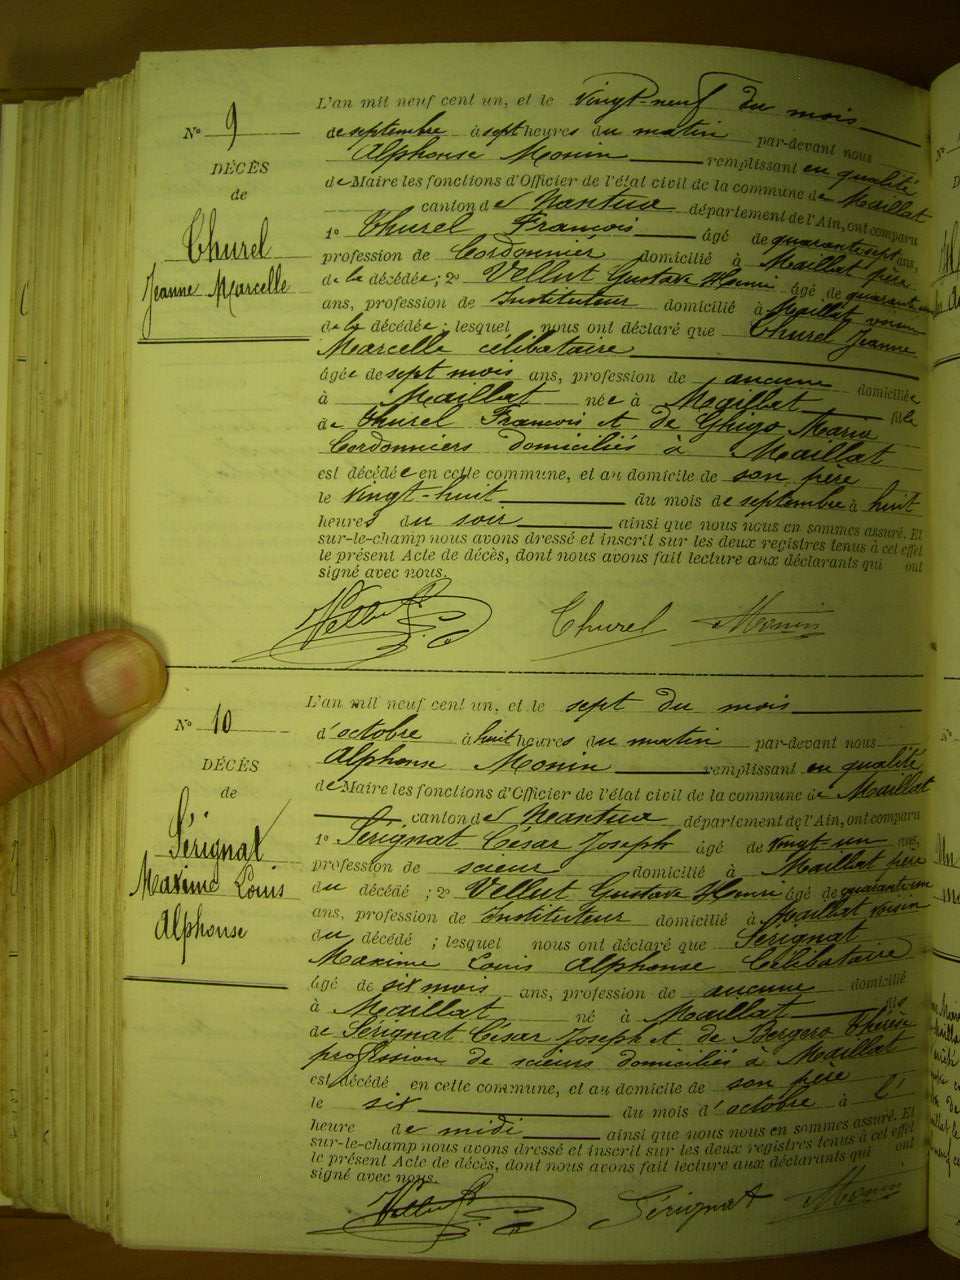 N° 9
DÉCÈS
de
Thurel
Jeanne Marcelle
L'an mil neuf cent un, et le vingt-neuf du mois
de septembre à sept heures du matin par-devant nous
Alphonse Monin remplissant en qualité
de Maire les fonctions d'Officier de l'état civil de la commune de Maillat
canton de Nantua département de l'Ain, ont comparu
1° Thurel François âgé de quarante sept ans,
profession de Cordonnier domicilié à Maillat père
de la décédée; 2° Vellut Gustave Henri âgé de quarante un
ans, profession de Instituteur domicilié à Maillat voisin
de la décédée; lesquel nous ont déclaré que Thurel Jeanne
Marcelle célibataire
âgée de sept mois ans, profession de aucune domiciliée
à Maillat née à Maillat fille
de Thurel François et de Ghigo Maria
Cordonniers domiciliés à Maillat
est décédée en cette commune, et au domicile de son père
le vingt-huit du mois de septembre à huit
heures du soir ainsi que nous nous en sommes assuré. Et
sur-le-champ nous avons dressé et inscrit sur les deux registres tenus à cet effet
le présent Acte de décès, dont nous avons fait lecture aux déclarants qui ont
signé avec nous.
Vellut Thurel Monin
N° 10
DÉCÈS
de
Sérignat
Maxime Louis
Alphonse
L'an mil neuf cent un, et le sept du mois
d'octobre à huit heures du matin par-devant nous
Alphonse Monin remplissant en qualité
de Maire les fonctions d'Officier de l'état civil de la commune de Maillat
canton de Nantua département de l'Ain, ont comparu
1° Sérignat César Joseph âgé de vingt-un ans,
profession de scieur domicilié à Maillat père
du décédé ; 2° Vellut Gustave Henri âgé de quarante un
ans, profession de Instituteur domicilié à Maillat voisin
du décédé ; lesquel nous ont déclaré que Sérignat
Maxime Louis Alphonse Célibataire
âgé de six mois ans, profession de aucune domicilié
à Maillat né à Maillat fils
de Sérignat César Joseph et de Bergero Thérèse
profession de scieurs domiciliés à Maillat
est décédé en cette commune, et au domicile de son père
le six du mois d'octobre à l'
heure de midi ainsi que nous nous en sommes assuré. Et
sur-le-champ nous avons dressé et inscrit sur les deux registres tenus à cet effet
le présent Acte de décès, dont nous avons fait lecture aux déclarants qui ont
signé avec nous.
Vellut Sérignat Monin